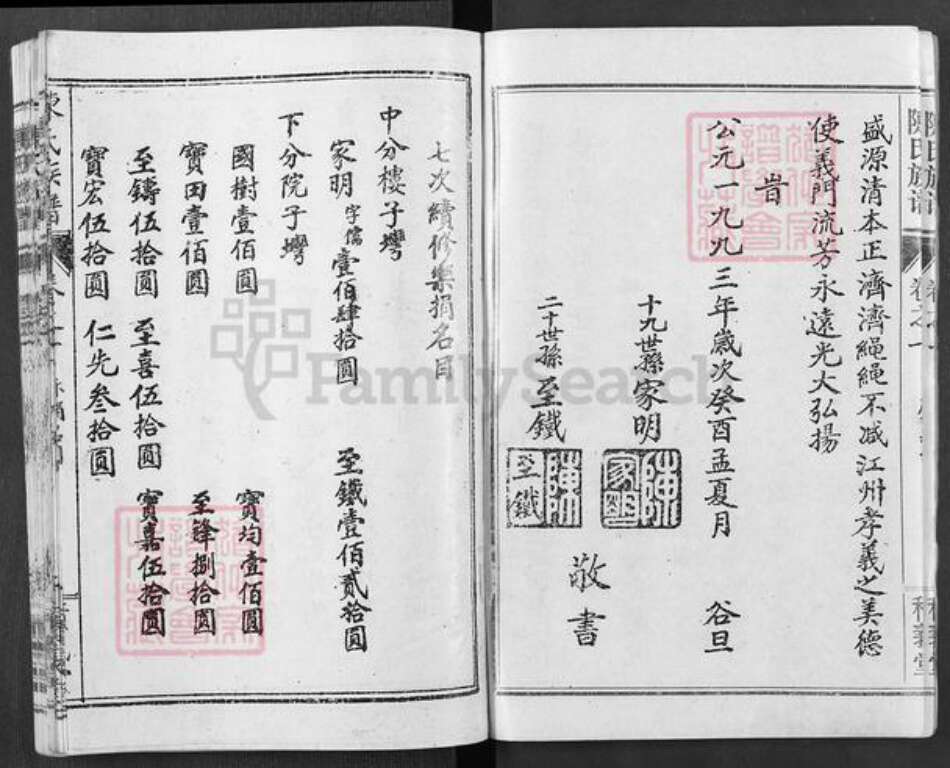 陳氏族譜 卷之一
盛源清本正濟濟繩繩不减江州孝義之美德
使義門流芳永遠光大弘揚
旹
公元一九九三年歲次癸酉孟夏月 谷旦
十九世孫家明
陳家明
二十世孫至鐵
陳至鐵
敬書
七次續修樂捐名目
中分樓子塆
家明字儒壹佰肆拾圓 至鐵壹佰貳拾圓
下分院子塆
國樹壹佰圓 寶均壹佰圓
寶田壹佰圓 至鋒捌拾圓
至鑄伍拾圓 至喜伍拾圓 寶嘉伍拾圓
寶宏伍拾圓 仁先叁拾圓
陳氏族譜 卷之一
FamilySearch